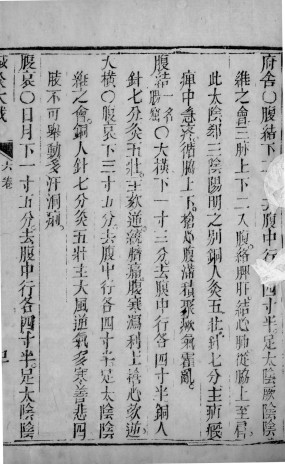 府舍〇腹結下二寸去腹中行各四寸半足太陰厥陰陰
維之會三脉上下二入腹絡脾肝結心肺從脇上至肩
此太陰郄三陰陽明之別銅人灸五壯針七分主疝癥
痺中急痛循脇上下搶心腹滿積聚厥氣霍亂
腹結 名腸窟〇大橫下一寸三分去腹中行各四寸半銅人
針七分灸五壯主欬逆繞臍痛腹寒瀉利上搶心欬逆
大橫〇腹哀下三寸五分去腹中行各四寸半足太陰陰
維之會銅人針七分灸五壯主大風逆氣多寒善悲四
肢不可舉動多汗洞痢
腹哀〇日月下一寸五分去腹中行各四寸半足太陰陰
鍼灸大成 六卷